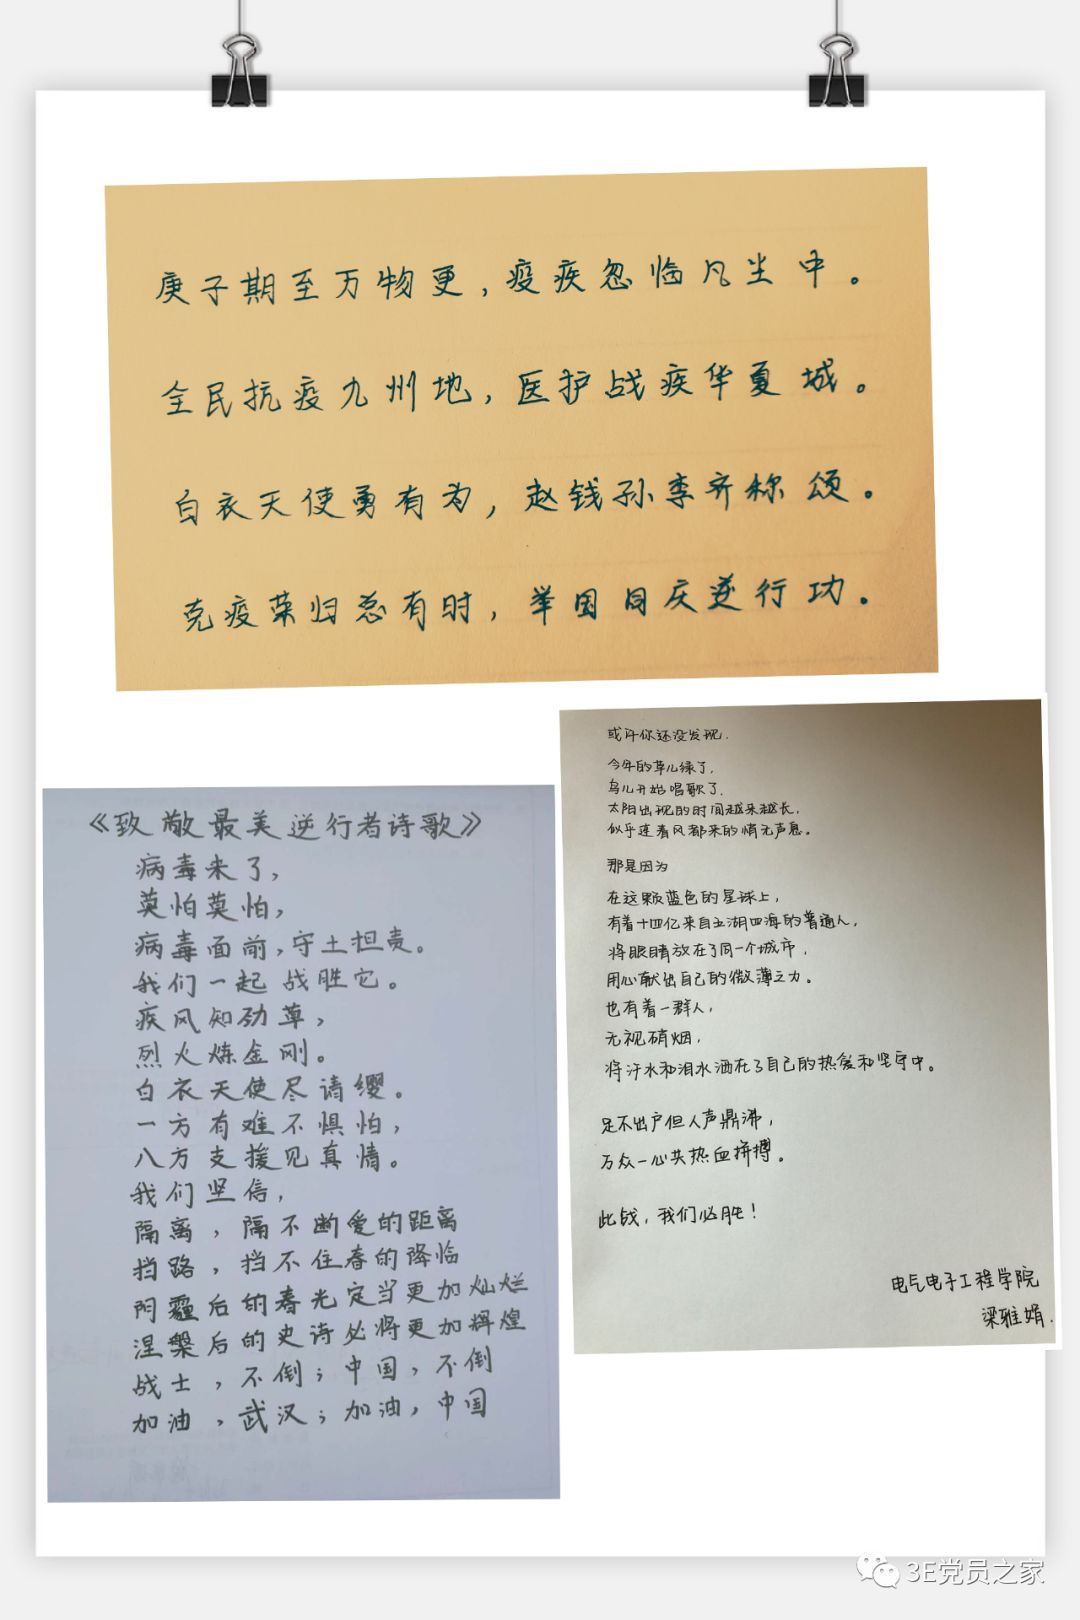 庚子期至万物更，疫疾忽临凡尘中。
全民抗疫九州地，医护战疾华夏城。
白衣天使勇有为，赵钱孙李齐称颂。
克疫荣归总有时，举国同庆逆行功。
《致敬最美逆行者诗歌》
病毒来了，
莫怕莫怕，
病毒面前，守土担责。
我们一起战胜它。
疾风知劲草，
烈火炼金刚。
白衣天使尽请缨。
一方有难不惧怕，
八方支援见真情。
我们坚信，
隔离，隔不断爱的距离
挡路，挡不住春的降临
阴霾后的春光定当更加灿烂
涅槃后的史诗必将更加辉煌
战士，不倒；中国，不倒
加油，武汉；加油，中国
或许你还没发现，
今年的草儿绿了，
鸟儿开始唱歌了，
太阳出现的时间越来越长，
似乎连春风都来的悄无声息。
那是因为
在这颗蓝色的星球上，
有着十四亿来自五湖四海的普通人，
将眼睛放在了同一个城市，
用心献出自己的微薄之力。
也有着一群人，
无视硝烟，
将汗水和泪水洒在了自己的热爱和坚守中。
足不出户但人声鼎沸，
万众一心共热血拼搏。
此战，我们必胜！
电气电子工程学院
梁雅娟.
3E党员之家